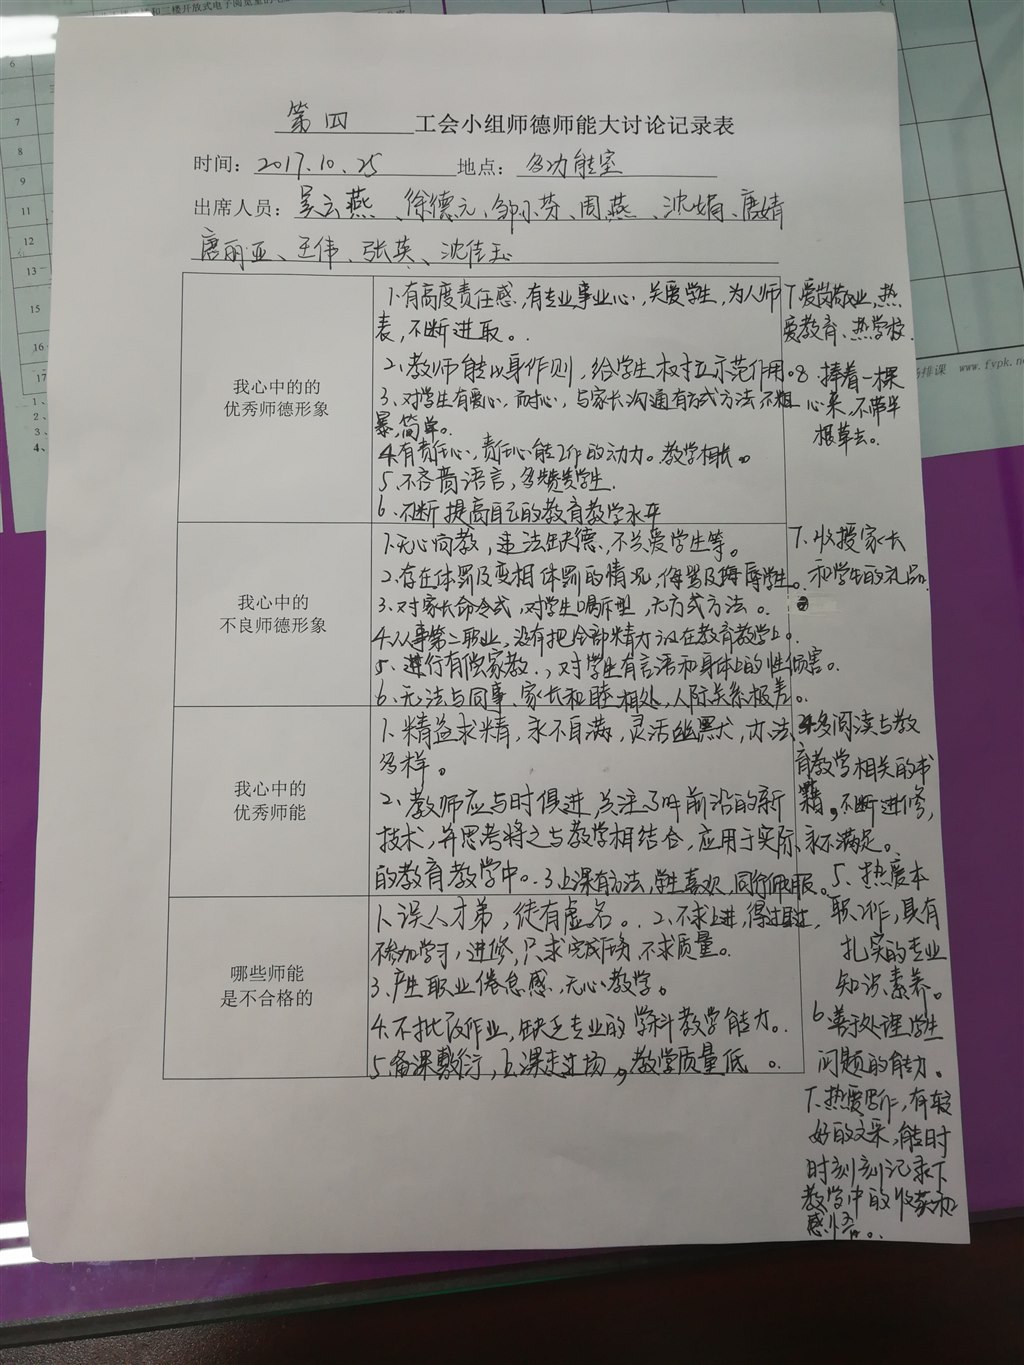 和二楼开放式电子阅览室的电
6
7
8
9
11
12
13
15
16
17
1、
2、
3、
4、
排课 www.fvpk.ne
第四 工会小组师德师能大讨论记录表
时间：2017.10.25 地点：多功能室
出席人员：吴云燕、徐德元、邹小芬、周燕、沈娟、唐婧
唐丽亚、王伟、张英、沈佳玉
我心中的的
优秀师德形象
1、有高度责任感，有专业事业心，关爱学生，为人师
表，不断进取。
2、教师能以身作则，给学生树立示范作用。
3、对学生有爱心，耐心，与家长沟通有方式方法，不粗
暴，简单。
4、有责任心，责任心能工作的动力。教学相长。
5、不吝啬语言，多赞赏学生。
6、不断提高自己的教育教学水平
7、爱岗敬业，热
爱教育、热学校.
8 捧着一棵
心来，不带半
根草去。
我心中的
不良师德形象
1、无心向教，违法缺德，不关爱学生等。
2、存在体罚及变相体罚的情况，侮骂及侮辱学生。
3、对家长命令式，对学生呵斥型，无方式方法。
4、从事第二职业，没有把全部精力放在教育教学上。
5、进行有偿家教.，对学生有言语和身体上的性伤害。
6、无法与同事、家长和睦相处，人际关系极差。
7、收授家长
和学生的礼品.
我心中的
优秀师能
1、精益求精，永不自满，灵活幽默，办法
多样。
2、教师应与时俱进，关注了解前沿的新
技术，并思考将之与教学相结合，应用于实际
的教育教学中。 3、上课有方法，学生喜欢，同行佩服。
4多阅读与教
育教学相关的书
籍，不断进修，
永不满足。
5、热爱本
职工作，具有
扎实的专业
知识素养。
6、善于处理学生
问题的能力。
7、热爱写作，有较
好的文采，能时
时刻刻记录下
教学中的收获和
感悟。
哪些师能
是不合格的
1、误人才弟，徒有虚名。 2、不求上进，得过且过，
不参加学习，进修，只求完成任务，不求质量。
3、产生职业倦怠感，无心教学。
4、不批改作业，缺乏专业的学科教学能力。
5、备课敷衍，上课走过场，教学质量低。